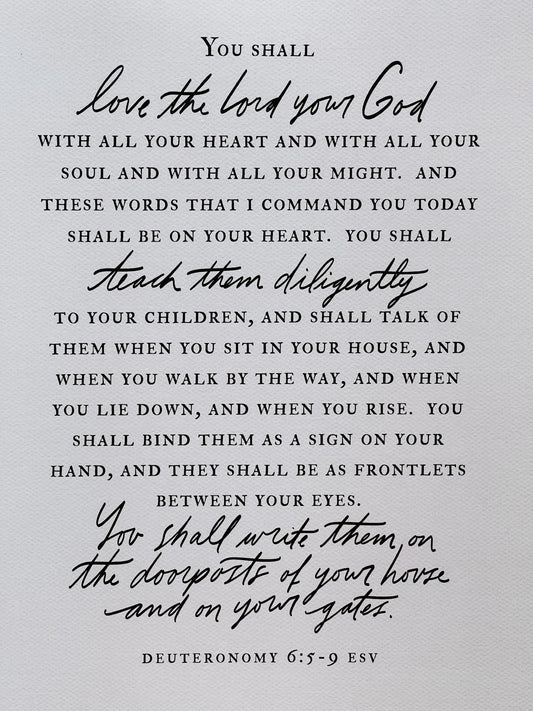 You shall
love the Lord your God
with all your heart and with all your
soul and with all your might. And
these words that I command you today
shall be on your heart. You shall
teach them diligently
to your children, and shall talk of
them when you sit in your house, and
when you walk by the way, and when
you lie down, and when you rise. You
shall bind them as a sign on your
hand, and they shall be as frontlets
between your eyes.
You shall write them on
the doorposts of your house
and on your gates.
Deuteronomy 6:5-9 ESV